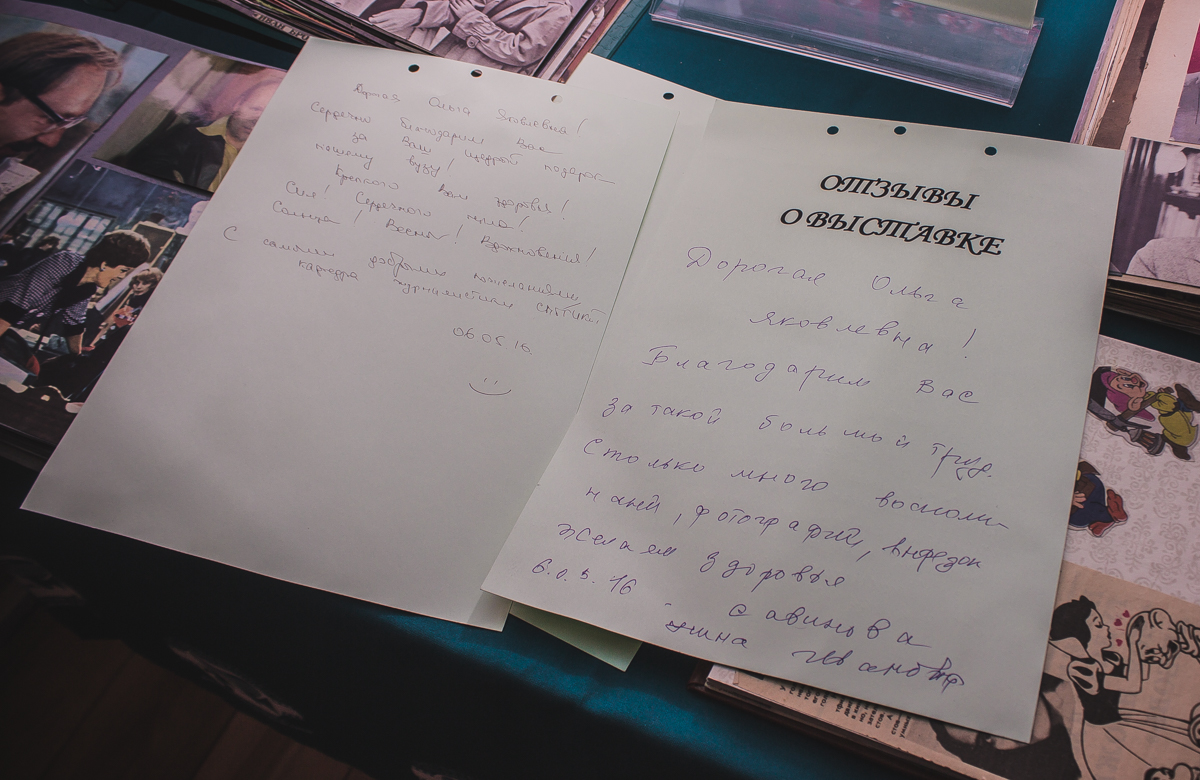 Дорогая Ольга Яковлевна!
Сердечно благодарим Вас
за Ваш щедрый подарок
нашему вузу!
Крепкого вам здоровья!
Сил! Сердечного тепла!
Солнца! Весны! Вдохновения!
С самыми добрыми пожеланиями
кафедра журналистики
06.05.16.
ОТЗЫВЫ
О ВЫСТАВКЕ
Дорогая Ольга
Яковлевна!
Благодарим Вас
за такой большой труд.
Столько много воспоми-
наний, фотографий, вырезок
Желаем здоровья
6.0.5.16
Савинова
Нина Ивановна